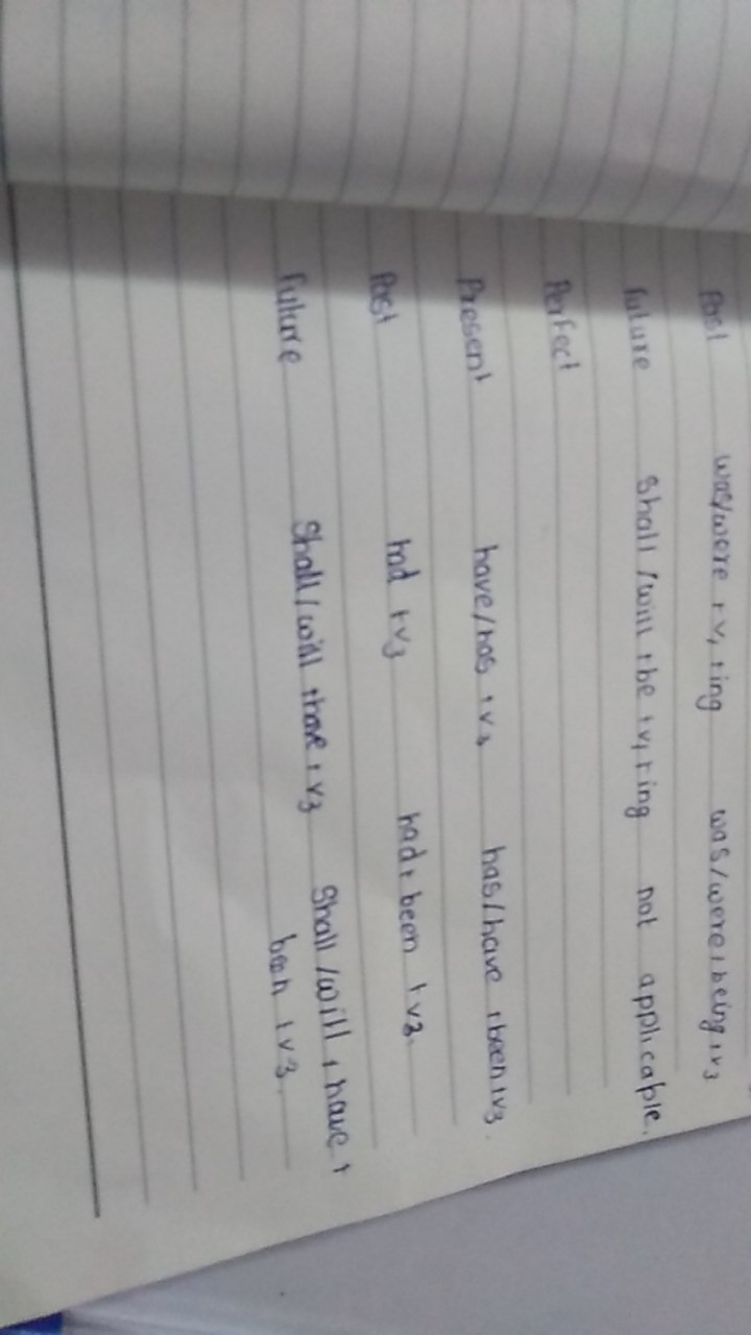 Past was/were + v1 + ing was/were + being + v3
future Shall / will + be + v1 + ing not applicable.
Perfect
Present have/has + v3 has/have + been + v3.
Past had + v3 had + been + v3.
future Shall / will + have + v3 Shall / will + have +
been + v3.